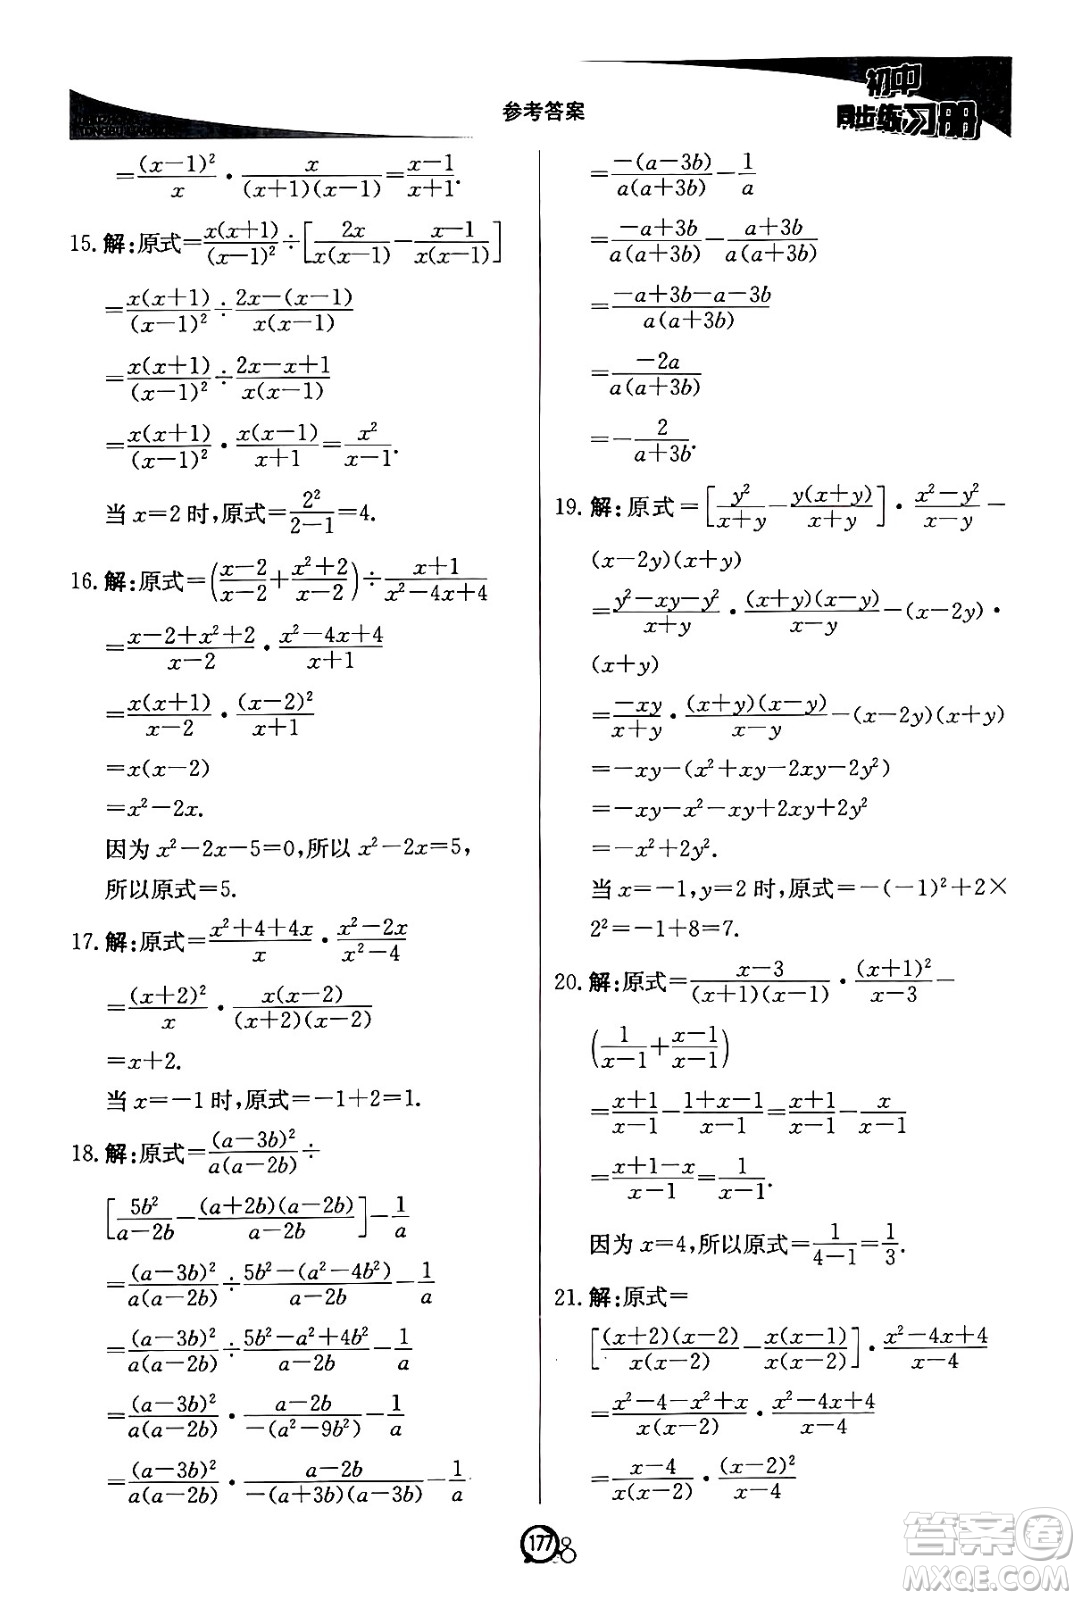 参考答案
初中
同步练习册
=\frac{(x-1)^2}{x}·\frac{x}{(x+1)(x-1)}=\frac{x-1}{x+1}.
15. 解:原式=\frac{x(x+1)}{(x-1)^2}÷[\frac{2x}{x(x-1)}-\frac{x-1}{x(x-1)}]
=\frac{x(x+1)}{(x-1)^2}÷\frac{2x-(x-1)}{x(x-1)}
=\frac{x(x+1)}{(x-1)^2}÷\frac{2x-x+1}{x(x-1)}
=\frac{x(x+1)}{(x-1)^2}·\frac{x(x-1)}{x+1}=\frac{x^2}{x-1}.
当 x=2 时,原式=\frac{2^2}{2-1}=4.
16. 解:原式=(\frac{x-2}{x-2}+\frac{x^2+2}{x-2})÷\frac{x+1}{x^2-4x+4}
=\frac{x-2+x^2+2}{x-2}·\frac{x^2-4x+4}{x+1}
=\frac{x(x+1)}{x-2}·\frac{(x-2)^2}{x+1}
=x(x-2)
=x^2-2x.
因为 x^2-2x-5=0,所以 x^2-2x=5,
所以原式=5.
17. 解:原式=\frac{x^2+4+4x}{x}·\frac{x^2-2x}{x^2-4}
=\frac{(x+2)^2}{x}·\frac{x(x-2)}{(x+2)(x-2)}
=x+2.
当 x=-1 时,原式=-1+2=1.
18. 解:原式=\frac{(a-3b)^2}{a(a-2b)}÷
[\frac{5b^2}{a-2b}-\frac{(a+2b)(a-2b)}{a-2b}]-\frac{1}{a}
=\frac{(a-3b)^2}{a(a-2b)}÷\frac{5b^2-(a^2-4b^2)}{a-2b}-\frac{1}{a}
=\frac{(a-3b)^2}{a(a-2b)}÷\frac{5b^2-a^2+4b^2}{a-2b}-\frac{1}{a}
=\frac{(a-3b)^2}{a(a-2b)}·\frac{a-2b}{-(a^2-9b^2)}-\frac{1}{a}
=\frac{(a-3b)^2}{a(a-2b)}·\frac{a-2b}{-(a+3b)(a-3b)}-\frac{1}{a}
=\frac{-(a-3b)}{a(a+3b)}-\frac{1}{a}
=\frac{-a+3b}{a(a+3b)}-\frac{a+3b}{a(a+3b)}
=\frac{-a+3b-a-3b}{a(a+3b)}
=\frac{-2a}{a(a+3b)}
=-\frac{2}{a+3b}.
19. 解:原式=[\frac{y^2}{x+y}-\frac{y(x+y)}{x+y}]·\frac{x^2-y^2}{x-y}-
(x-2y)(x+y)
=\frac{y^2-xy-y^2}{x+y}·\frac{(x+y)(x-y)}{x-y}-(x-2y)·
(x+y)
=\frac{-xy}{x+y}·\frac{(x+y)(x-y)}{x-y}-(x-2y)(x+y)
=-xy-(x^2+xy-2xy-2y^2)
=-xy-x^2-xy+2xy+2y^2
=-x^2+2y^2.
当 x=-1,y=2 时,原式=-(-1)^2+2×
2^2=-1+8=7.
20. 解:原式=\frac{x-3}{(x+1)(x-1)}·\frac{(x+1)^2}{x-3}-
(\frac{1}{x-1}+\frac{x-1}{x-1})
=\frac{x+1}{x-1}-\frac{1+x-1}{x-1}=\frac{x+1}{x-1}-\frac{x}{x-1}
=\frac{x+1-x}{x-1}=\frac{1}{x-1}.
因为 x=4,所以原式=\frac{1}{4-1}=\frac{1}{3}.
21. 解:原式=
[\frac{(x+2)(x-2)}{x(x-2)}-\frac{x(x-1)}{x(x-2)}]·\frac{x^2-4x+4}{x-4}
=\frac{x^2-4-x^2+x}{x(x-2)}·\frac{x^2-4x+4}{x-4}
=\frac{x-4}{x(x-2)}·\frac{(x-2)^2}{x-4}
177
答案卷
MXQE.COM